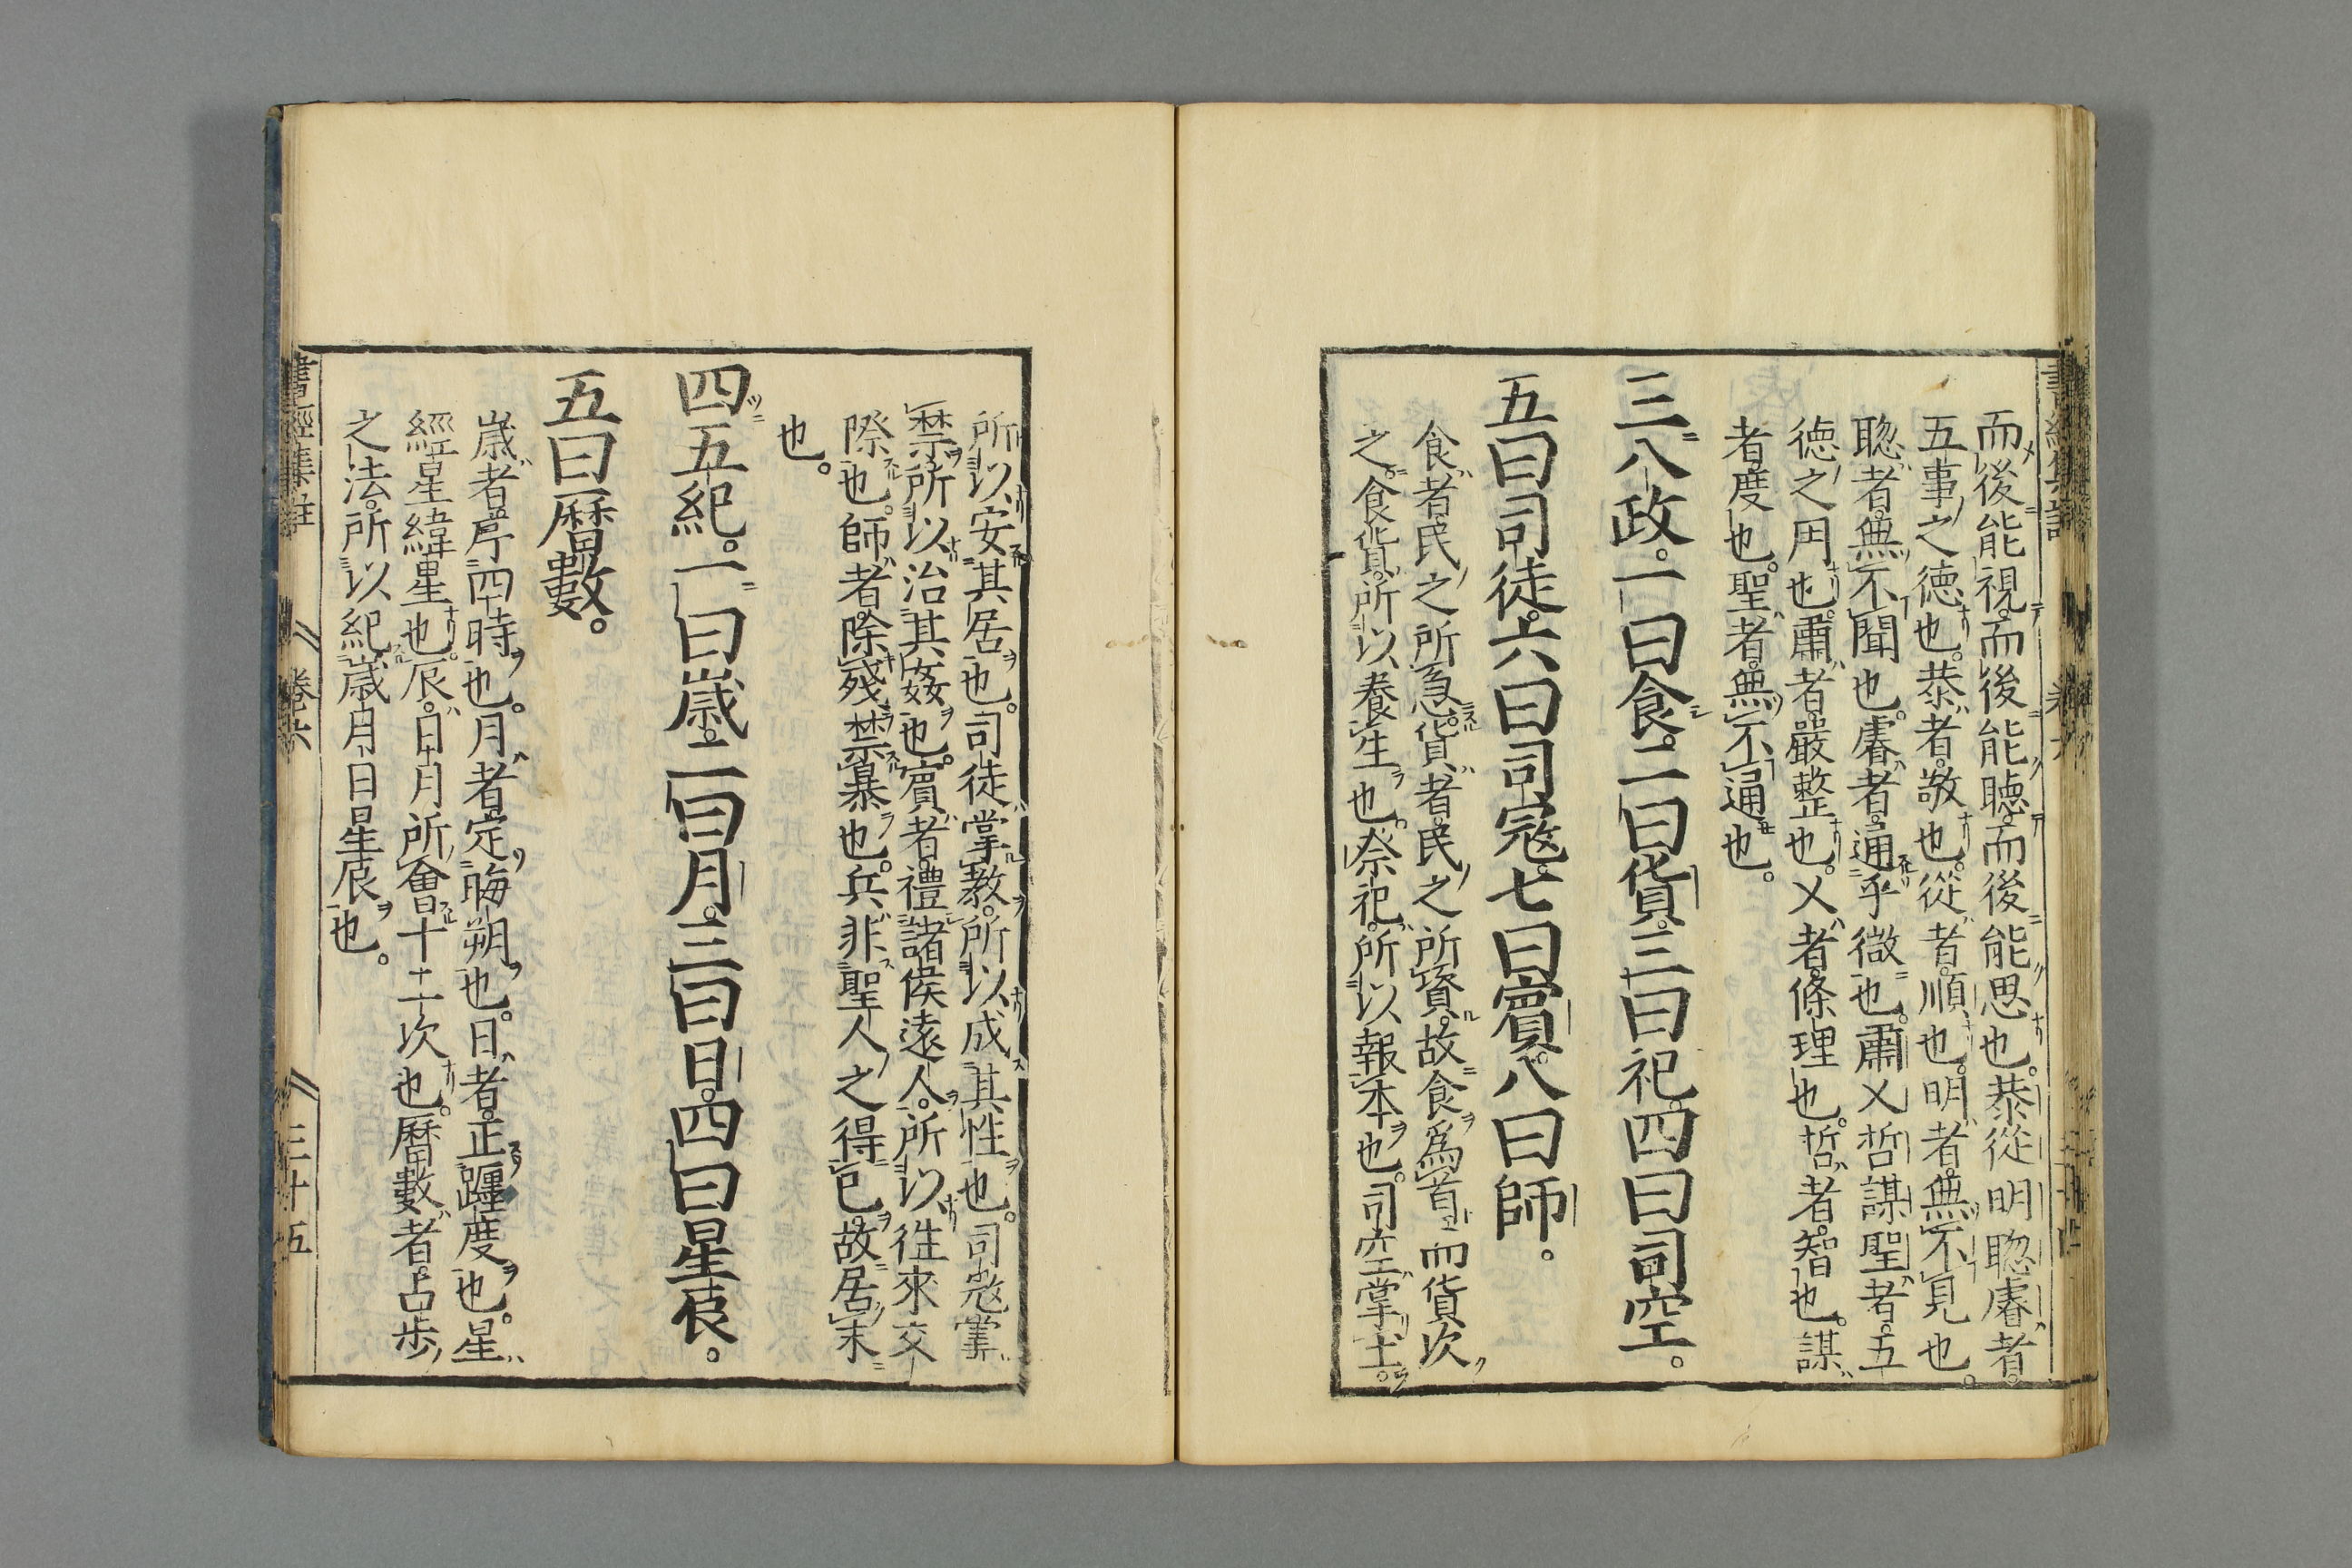 而後能視。而後能聽。而後能思也。恭從明聰睿者。
五事之德也。恭者。敬也。從者。順也。明者。無不見也。
聰者。無不聞也。睿者。通乎微也。肅乂哲謀聖者。五
德之用也。肅者。嚴整也。乂者。條理也。哲者。智也。謀
者。度也。聖者。無不通也。
三八政。一曰食。二曰貨。三曰祀。四曰司空。
五曰司徒。六曰司寇。七曰賓。八曰師。
食者。民之所急。貨者。民之所資。故食爲首。而貨次
之。食貨。所以養生也。祭祀。所以報本也。司空掌土。
所以安其居也。司徒掌教。所以成其性也。司寇掌
禁。所以治其姦也。賓者。禮諸侯遠人。所以往來交
際也。師者。除殘禁暴也。兵非聖人之得已。故居末
也。
四五紀。一曰歲。二曰月。三曰日。四曰星辰。
五曰曆數。
歲者。序四時也。月者。定晦朔也。日者。正躔度也。星。
經星緯星也。辰。日月所會十二次也。曆數者。占步
之法。所以紀歲月日星辰也。
書經集註 卷六 三十五